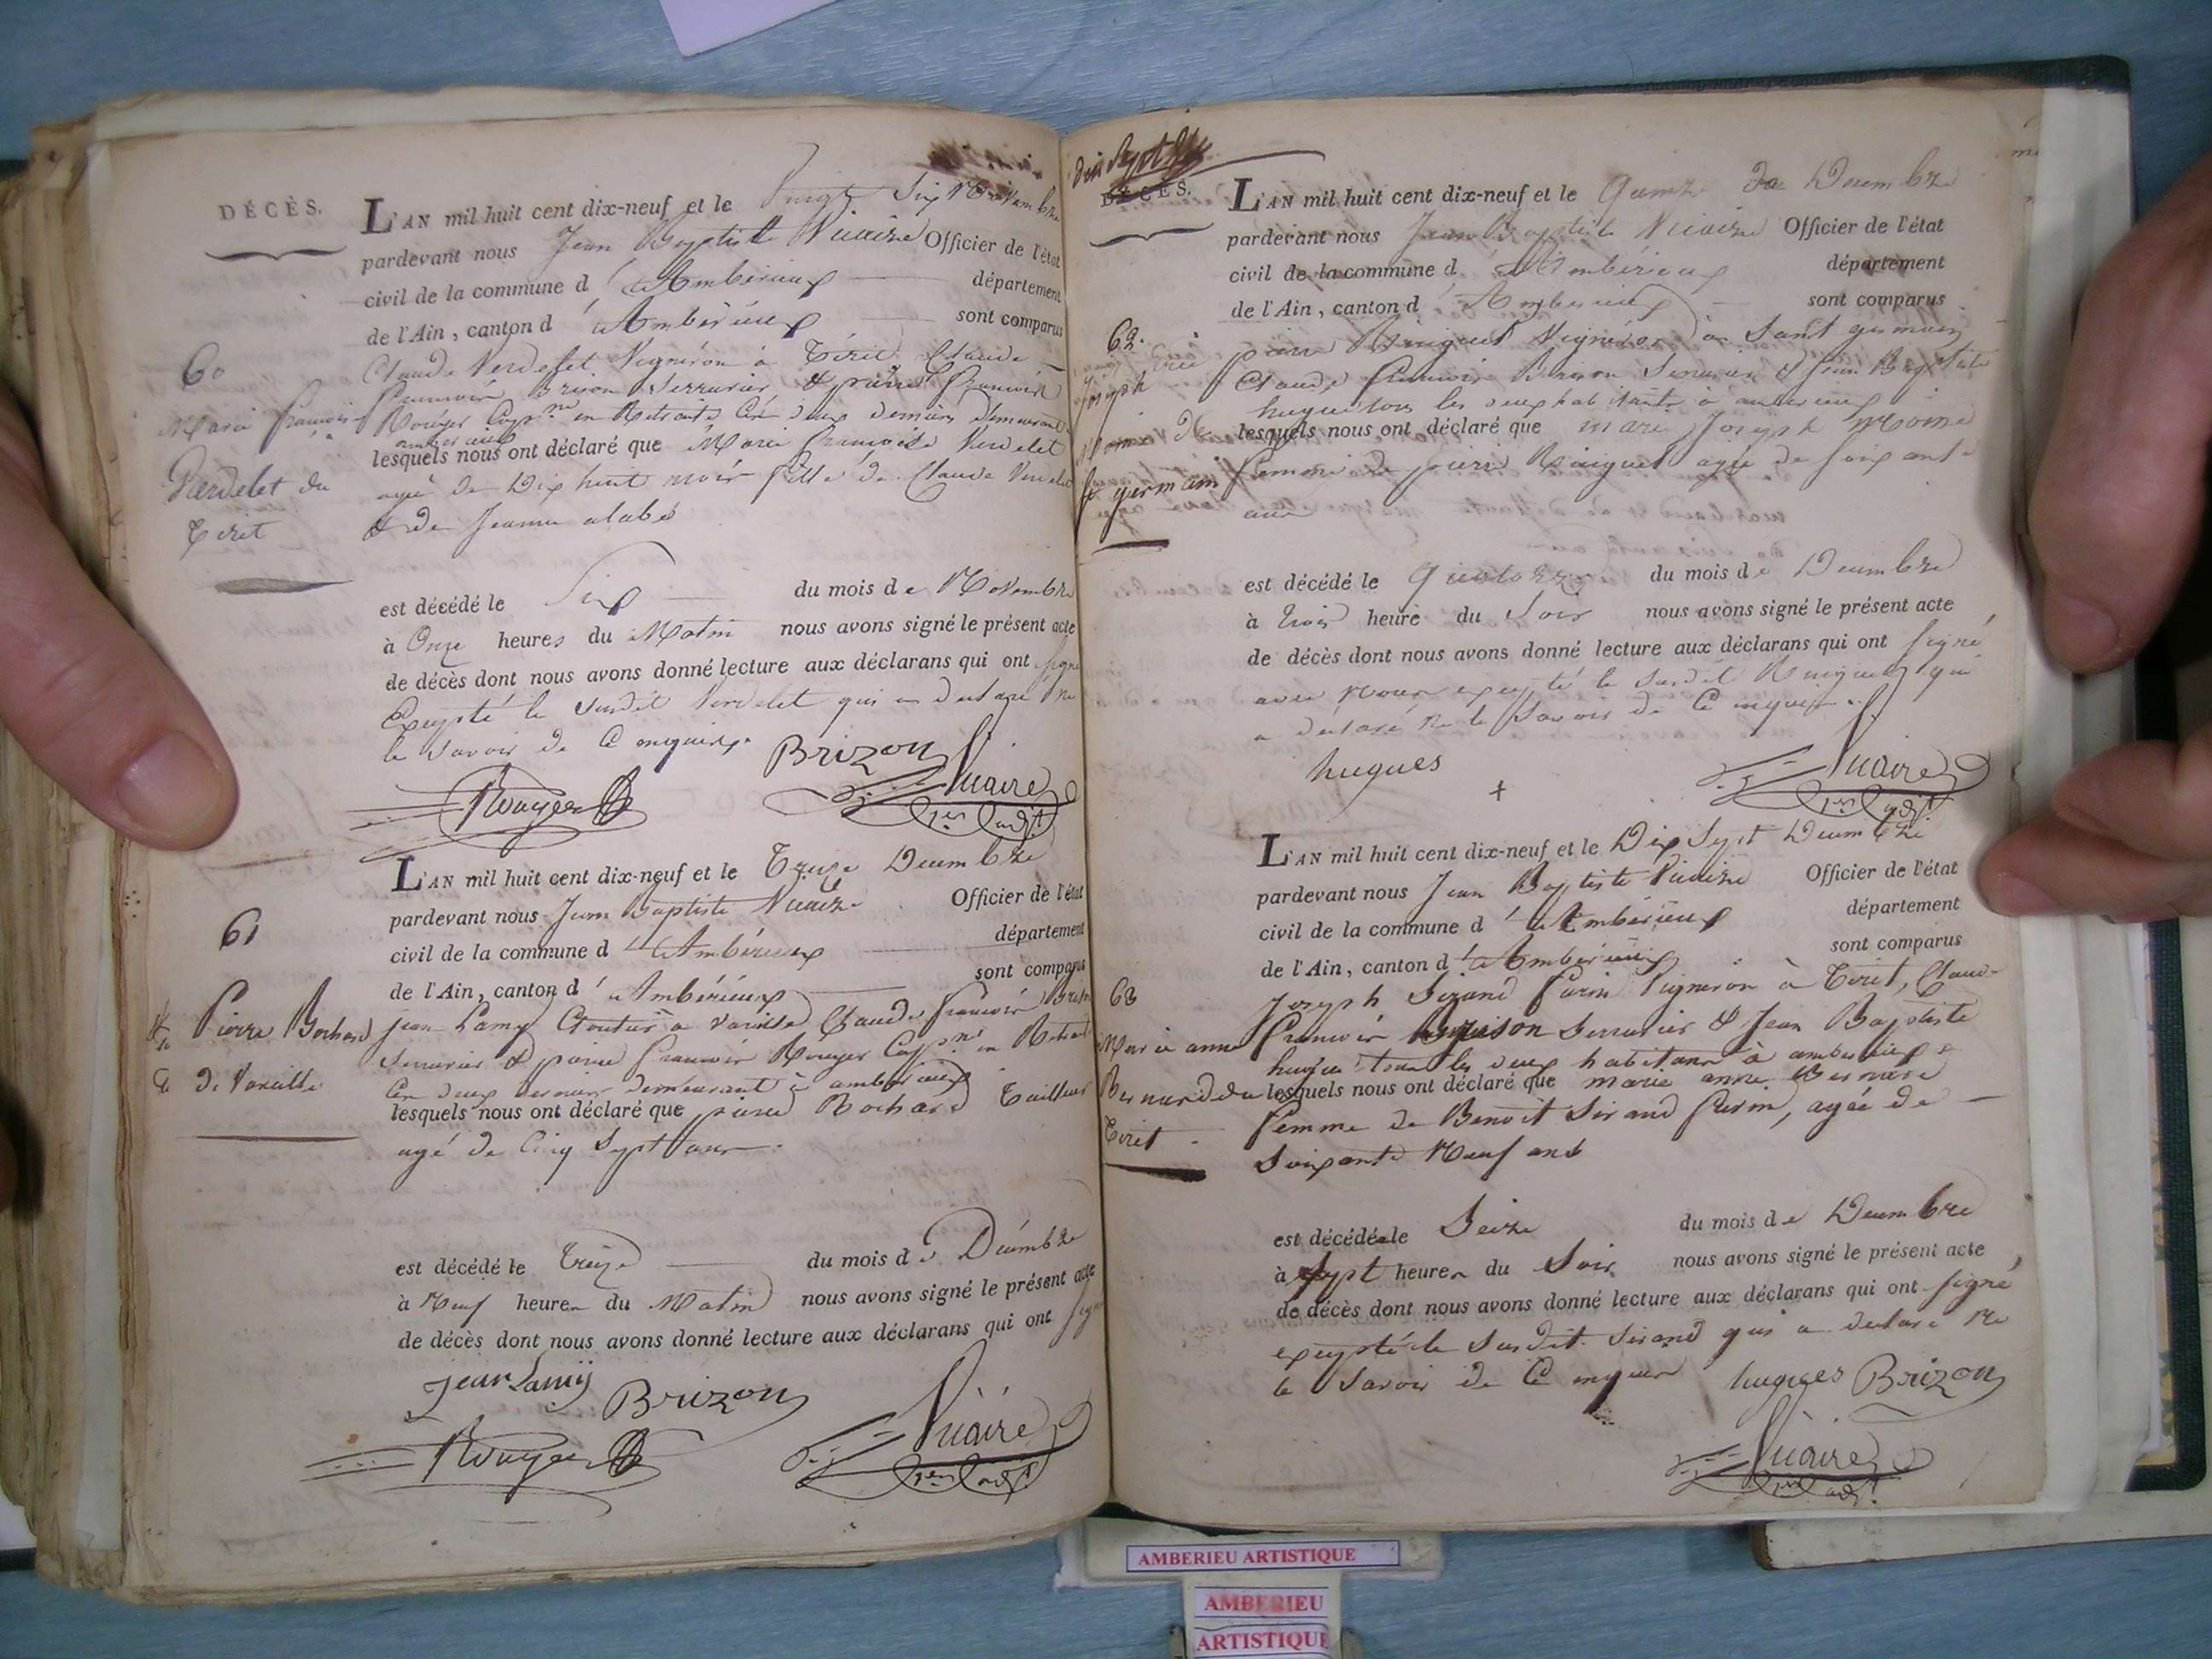 DÉCÈS.
L'AN mil huit cent dix-neuf et le Vingt Six Novembre
pardevant nous Jean Baptiste Vicaire Officier de l'état
civil de la commune d'Ambérieux département
de l'Ain, canton d'Ambérieux sont comparus
60
Claude Verdelet Vigneron à Tiret Claude
François Brison Serrurier & pierre François
Rouyer Capne en Retraite Ces deux derniers demeurant
amberieux
Marie françoise
Verdelet du
Tiret
lesquels nous ont déclaré que Marie françoise Verdelet
agée de Dix huit mois fille de Claude Verdelet
& de Jeanne alabé
est décédé le Six du mois de Novembre
à Onze heures du Matin nous avons signé le présent acte
de décès dont nous avons donné lecture aux déclarans qui ont signé
Excepté le Susdit Verdelet qui a declaré ne
le Savoir de Ce enquis.
BRizon
Rouyer Vicaire
1er adjt
L'AN mil huit cent dix-neuf et le Treize Decembre
pardevant nous Jean Baptiste Vicaire Officier de l'état
civil de la commune d'Ambérieux département
de l'Ain, canton d'Ambérieux sont comparus
61
Pierre Bochard
de Vareille
jean Lamy Cloutier a Vareille, Claude françois Brison
Serrurier & pierre françois Rouyer Capne en Retraite
Ces deux derniers demeurant à amberieux
lesquels nous ont déclaré que pierre Bochard Tailleur
agé de Cinq Sept ans
est décédé le Treize du mois de Décembre
à Neuf heures du Matin nous avons signé le présent acte
de décès dont nous avons donné lecture aux déclarans qui ont signé
jean Lamy BRizon
Rouyer Vicaire
1er adjt
dix Sept
DÉCÈS.
L'AN mil huit cent dix-neuf et le Quinze de Decembre
pardevant nous Jean Baptiste Vicaire Officier de l'état
civil de la commune d'Ambérieux département
de l'Ain, canton d'Ambérieux sont comparus
62.
Joseph
Moine de
St germain
pierre Vigneron à Saint germain
Claude françois Brison Serrurier & Jean Baptiste
hugue tous les deux habitants à amberieux
lesquels nous ont déclaré que marie Joseph Moine
femme de pierre agée de Soixante
ans
est décédé le Quatorze du mois de Decembre
à trois heure du Soir nous avons signé le présent acte
de décès dont nous avons donné lecture aux déclarans qui ont signé
avec Nous excepté le Susdit qui
a déclaré ne le Savoir de Ce enquis.
hugues
Vicaire
1er adjt
L'AN mil huit cent dix-neuf et le Dix Sept Decembre
pardevant nous Jean Baptiste Vicaire Officier de l'état
civil de la commune d'Ambérieux département
de l'Ain, canton d'Ambérieux sont comparus
63
Marie anne
Bernard du
Tiret
Joseph Sirand furin Vigneron à Tiret, Claude
François Brison Serrurier & Jean Baptiste
hugue tous les deux habitans à amberieux
lesquels nous ont déclaré que marie anne Bernard
femme de Benoit Sirand furin, agée de
Soixante Neuf ans
est décédée le Seize du mois de Decembre
à Sept heures du Soir nous avons signé le présent acte
de décès dont nous avons donné lecture aux déclarans qui ont signé
excepté le Susdit Sirand qui a declaré ne
le Savoir de Ce enquis hugues BRizon
Vicaire
1er adjt
AMBERIEU ARTISTIQUE
AMBERIEU
ARTISTIQUE